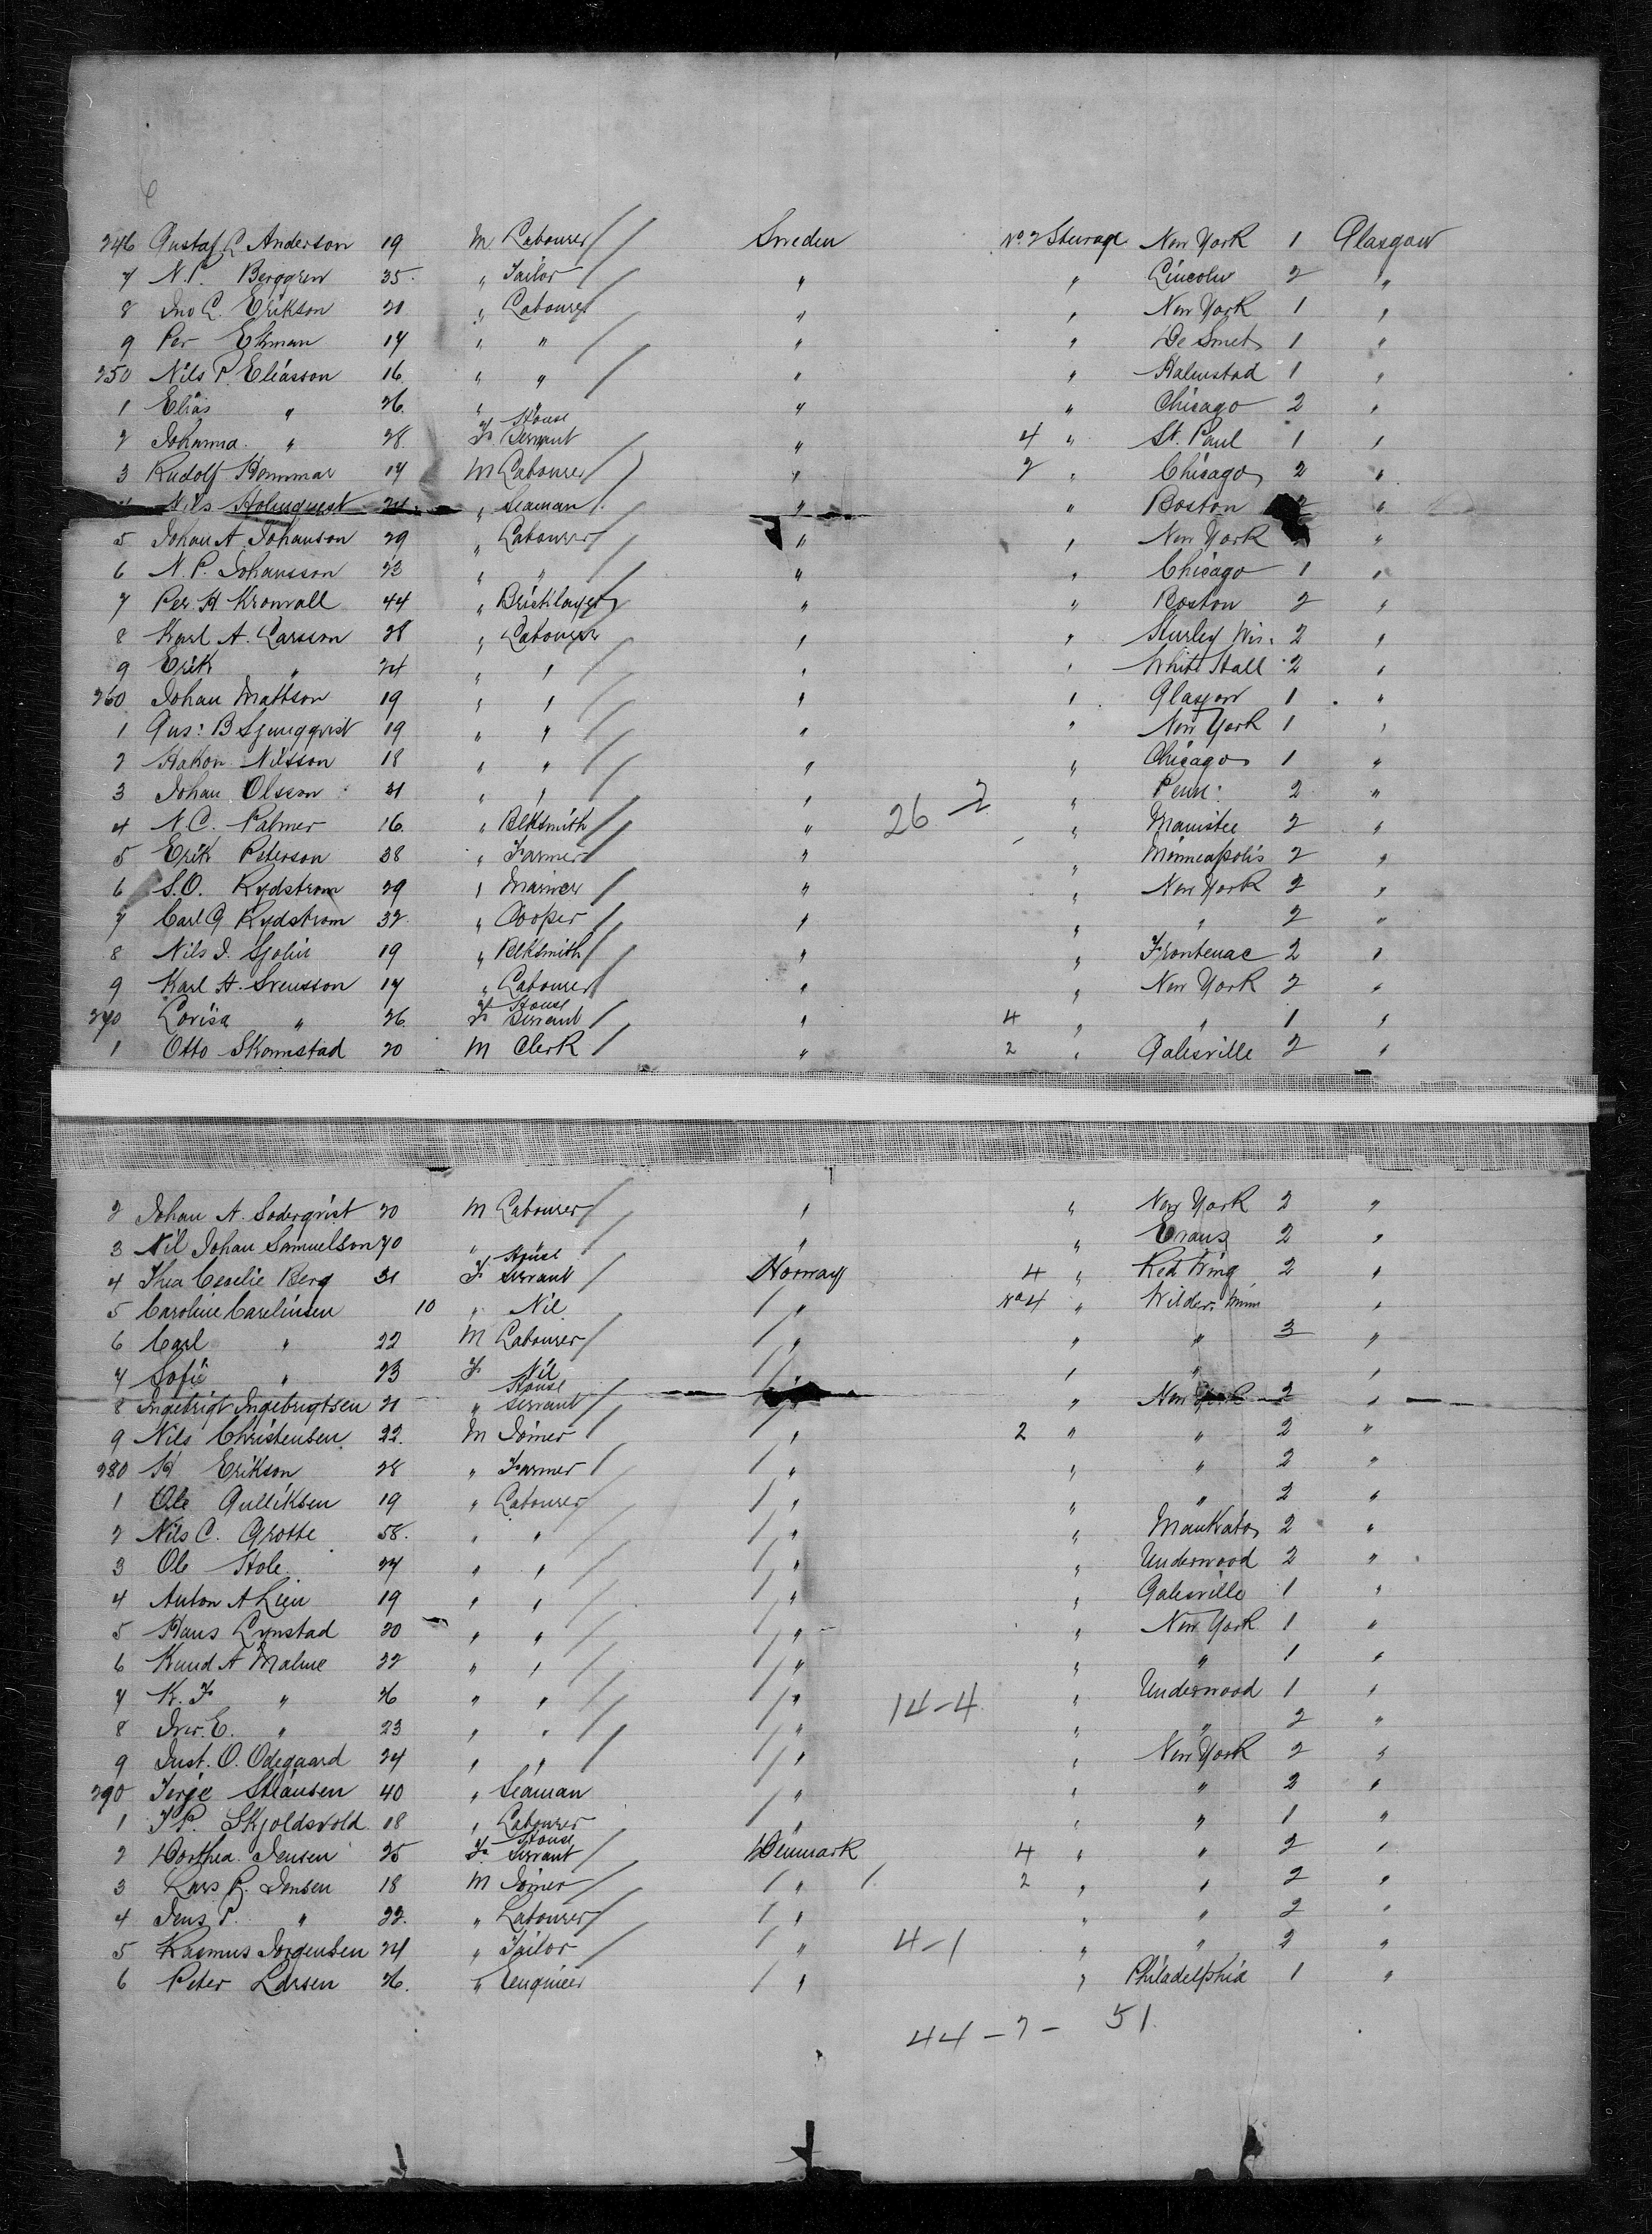 246 Gustaf L Anderson 19 M Labourer Sweden No. 2 Steerage New York 1 Glasgow
7 N. P. Berggren 35 " Tailor " " Lincoln 2 "
8 Jno L. Erikson 21 " Labourer " " New York 1 "
9 Per Ekman 17 " " " " De Smet 1 "
250 Nils P. Eliasson 16 " " " " Halmstad 1 "
1 Elias " 26 " " " " Chicago 2 "
2 Johanna " 28 F House Servant " 4 " St. Paul 1 "
3 Rudolf Hammar 17 M Labourer " 2 " Chicago 2 "
Nils Holmquest 24 " Seaman " " Boston 2 "
5 Johan A Johanson 29 " Labourer " " New York "
6 N. P. Johansson 23 " " " " Chicago 1 "
7 Per H Kronvall 44 " Bricklayer " " Boston 2 "
8 Karl A. Larsson 28 " Labourer " " Hurley Wis. 2 "
9 Erik " 24 " " " " White Hall 2 "
260 Johan Mattson 19 " " " " Glasgow 1 "
1 Gus: B Ljungqvist 19 " " " " New York 1 "
2 Hakon Nilsson 18 " " " " Chicago 1 "
3 Johan Olsson 21 " " " " Penn: 2 "
26 - 2
4 N. C. Palmer 16 " Blksmith " " Manistee 2 "
5 Erik Peterson 38 " Farmer " " Minneapolis 2 "
6 S. O. Rydstrom 29 " Mariner " " New York 2 "
7 Carl G Rydstrom 32 " Cooper " " " 2 "
8 Nils J. Sjolin 19 " Blksmith " " Frontenac 2 "
9 Karl H. Svensson 17 " Labourer " " New York 2 "
270 Lovisa " 26 F House Servant " 4 " " 1 "
1 Otto Skonnstad 20 M Clerk " 2 " Galesville 2 "
2 Johan A. Soderqvist 20 M Labourer " " New York 2 "
3 Nil Johan Samuelson 70 " " " Evans 2 "
4 Thea Cecelie Berg 31 F House Servant Norway 4 " Red Wing 2 "
5 Caroline Carelinsen 10 " Nil " No 4 " Wilder, Minn "
6 Carl " 22 M Labourer " " " 3 "
7 Sofie " 23 F Nil " " " "
8 Ingebrigt Ingebrigtsen 21 " House Servant " " New York 2 "
9 Nils Christensen 22 M Joiner " 2 " " 2 "
280 H Erikson 28 " Farmer " " " 2 "
1 Ole Gulliksen 19 " Labourer " " " 2 "
2 Nils C. Grotte 58 " " " " Mankato 2 "
3 Ole Hole 27 " " " " Underwood 2 "
4 Anton A Lien 19 " " " " Galesville 1 "
5 Hans Lynstad 20 " " " " New York 1 "
6 Knud A Malme 22 " " " " " 1 "
7 K. F " 26 " " " " Underwood 1 "
14 - 4
8 Iver E. " 23 " " " " " 2 "
9 Just. O. Odegaard 24 " " " " New York 2 "
290 Terje Stiansen 40 " Seaman " " " 2 "
1 T P. Skjoldsvold 18 " Labourer " " " 1 "
2 Dorthea Jensen 25 F House Servant Denmark 4 " " 2 "
3 Lars P. Jensen 18 M Joiner " 2 " " 2 "
4 Jens P. " 22 " Labourer " " " 2 "
5 Rasmus Jorgensen 24 " Tailor " 4 - 1 " " 2 "
6 Peter Larsen 26 " Engineer " " Philadelphia 1 "
44 - 7 - 51